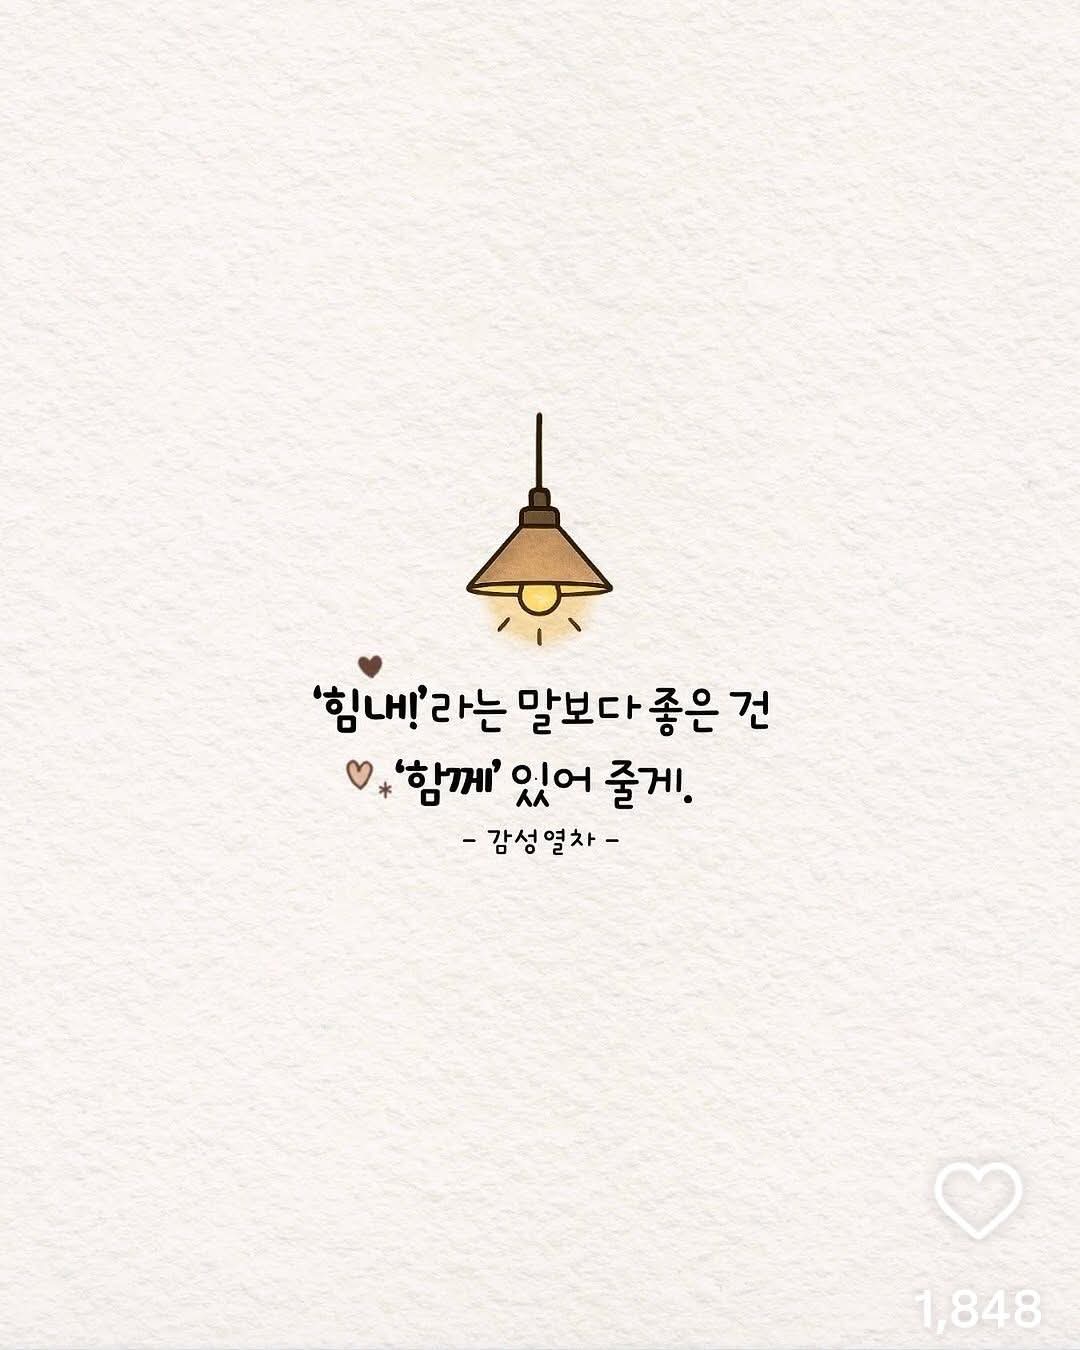 ‘힘내!’라는 말보다 좋은 건
‘함께’ 있어 줄게.
- 감성열차 -
1,848